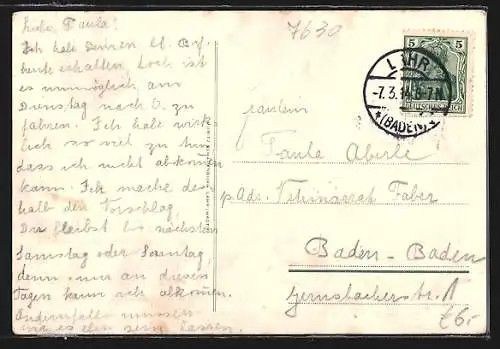 Liebe Paula!
Ich hab Deinen lb. Brf.
heute erhalten. Doch ist
es unmöglich am
Dienstag nach O. zu
fahren. Ich habe wirk-
lich so viel zu tun
dass ich nicht abkommen
kann. Ich mache des-
halb den Vorschlag,
Du bleibst bis nächsten
Samstag oder Sonntag,
denn nur an diesen
Tagen kann ich abkommen.
Andernfalls müssen
wir es eben sein lassen.
7630
5 5
DEUTSCHES REICH
LAHR
-7.3.14. 6-7 N.
*(BADEN)
Fräulein
Paula Aberle
p. Adr. Faber
Baden-Baden
Gernsbacherstr. 1
£6.-